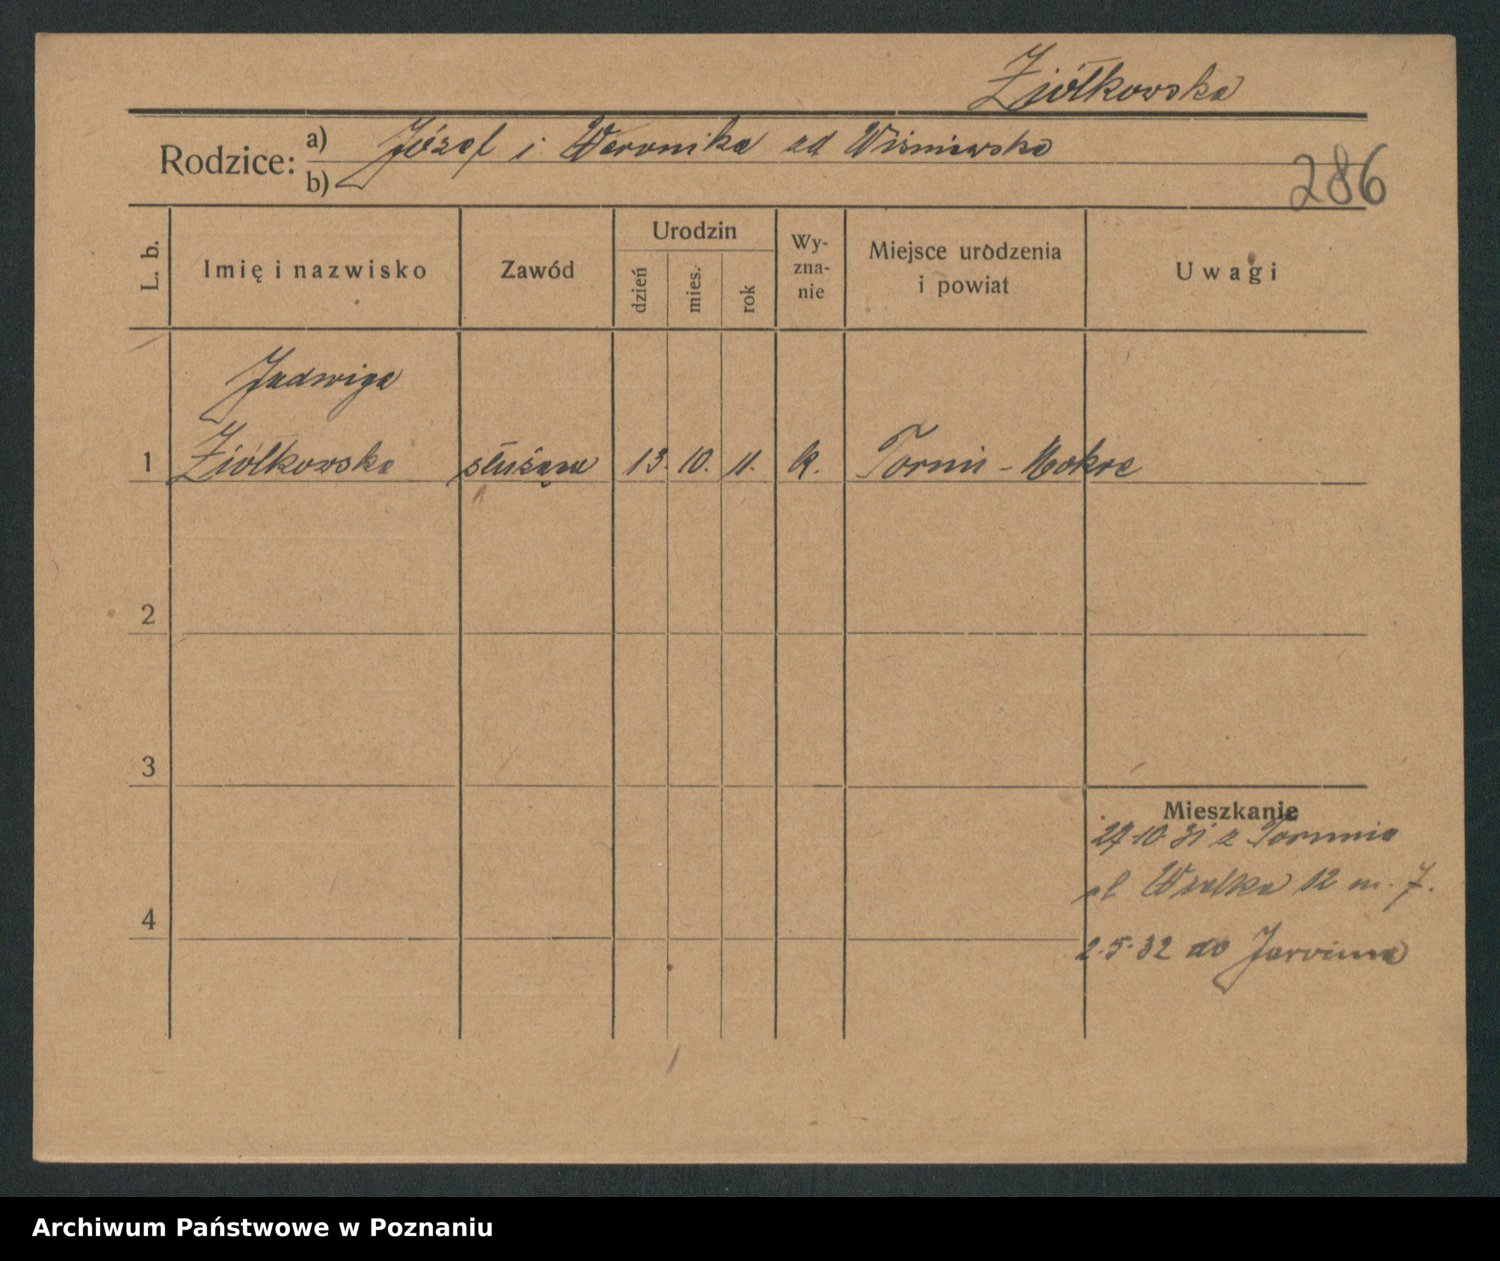 Ziółkowska
Rodzice: a) Józef i Weronika zd Wiśniewska
b)
286
L. b.
Imię i nazwisko
Zawód
Urodzin
dzień
mies.
rok
Wy-
zna-
nie
Miejsce urodzenia
i powiat
Uwagi
Jadwiga
1 Ziółkowska służąca 13. 10. 11. k. Toruń - Mokre
2
3
Mieszkanie
27.10.31 z Torunia
ul Wielka 12 m. 7.
4
2.5.32 do
Archiwum Państwowe w Poznaniu